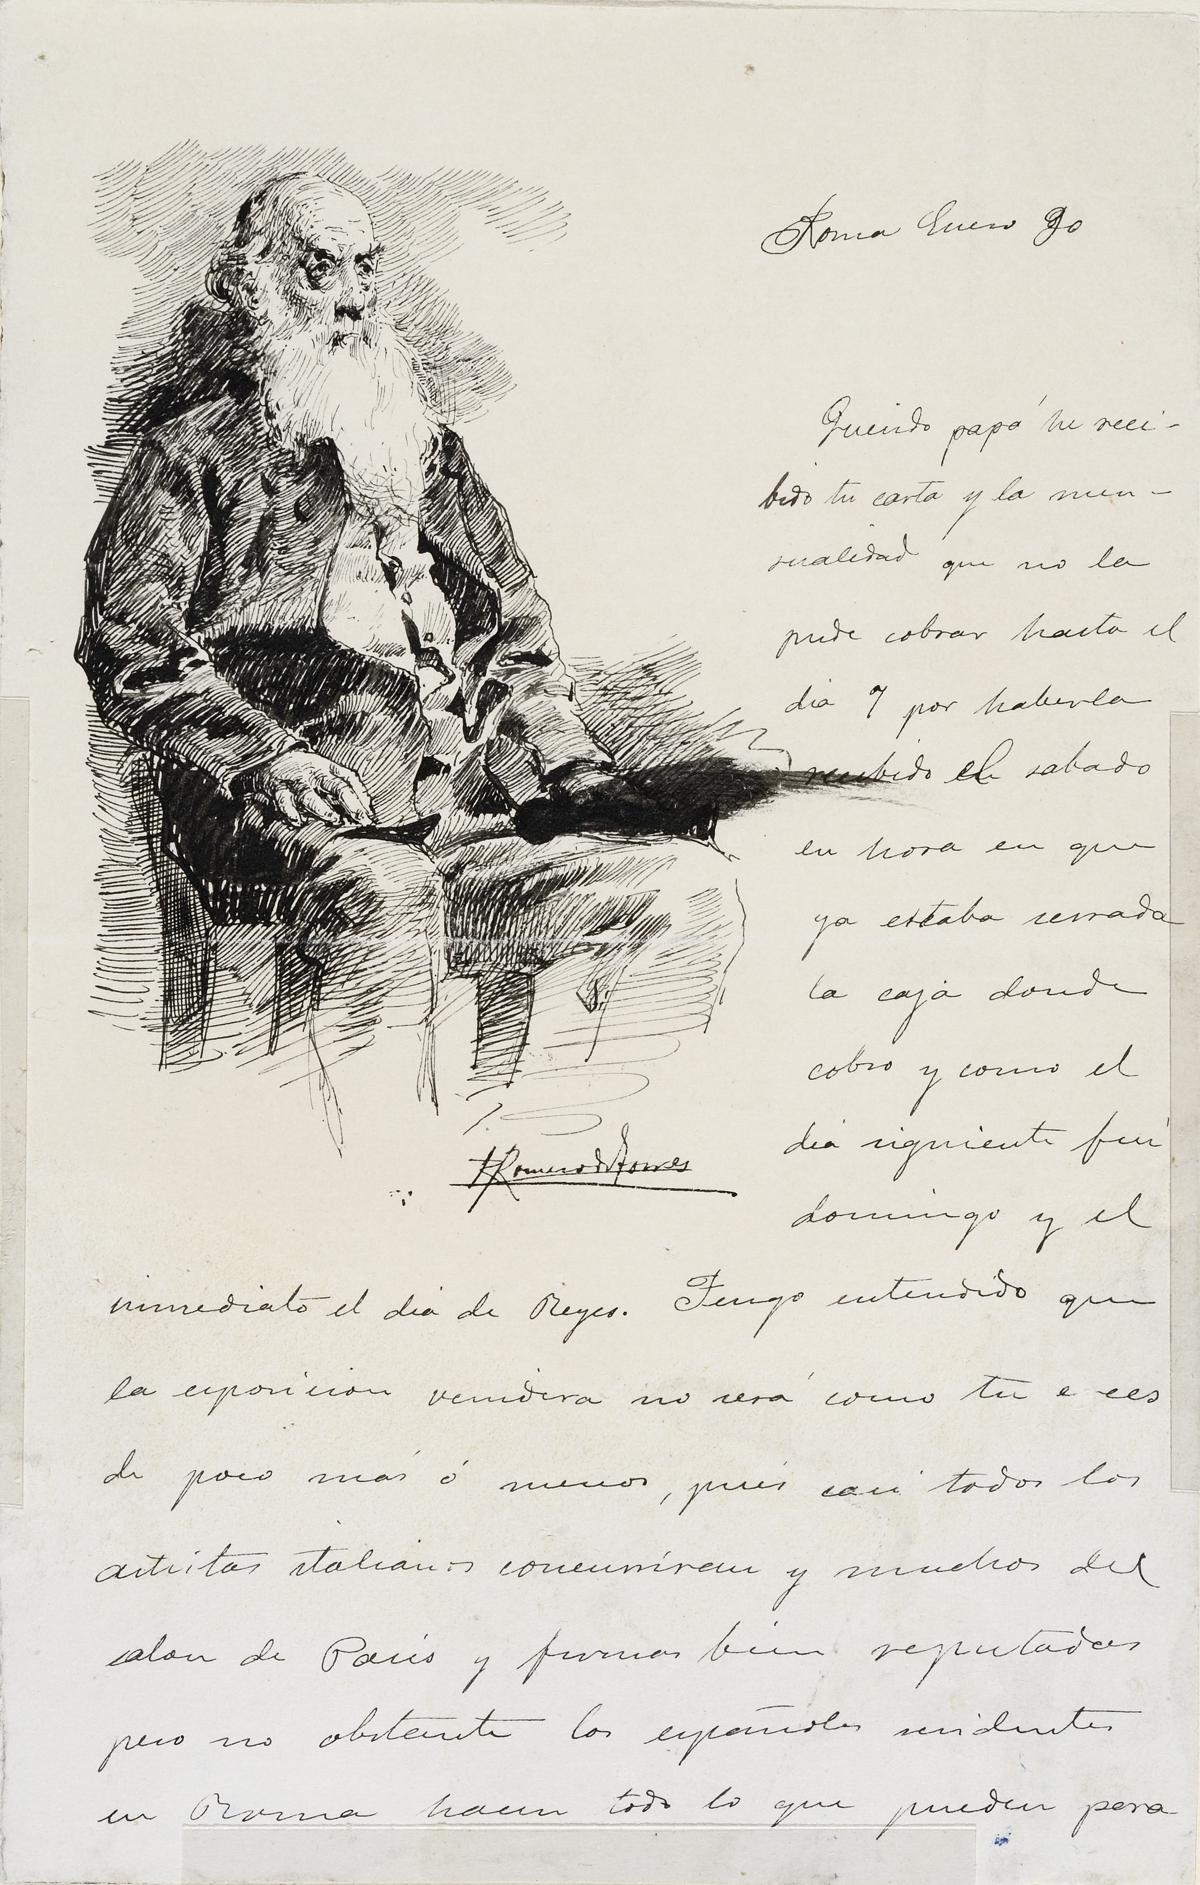 Roma Enero 90
Querido papá he reci-
bido tu carta y la men-
sualidad que no la
pude cobrar hasta el
dia 7 por haberla
recibido el sabado
en hora en que
ya estaba serrada
la caja donde
cobro y como el
dia siguiente fué
domingo y el
inmediato el dia de Reyes. Tengo entendido que
la esposicion venidera no será como tu crees
de poco más ó menos, pues casi todos los
artistas italianos concurriran y muchos del
salon de Paris y firmas bien reputadas
pero no obstante los españoles residentes
en Roma hacen todo lo que pueden para
R Romero de Torres